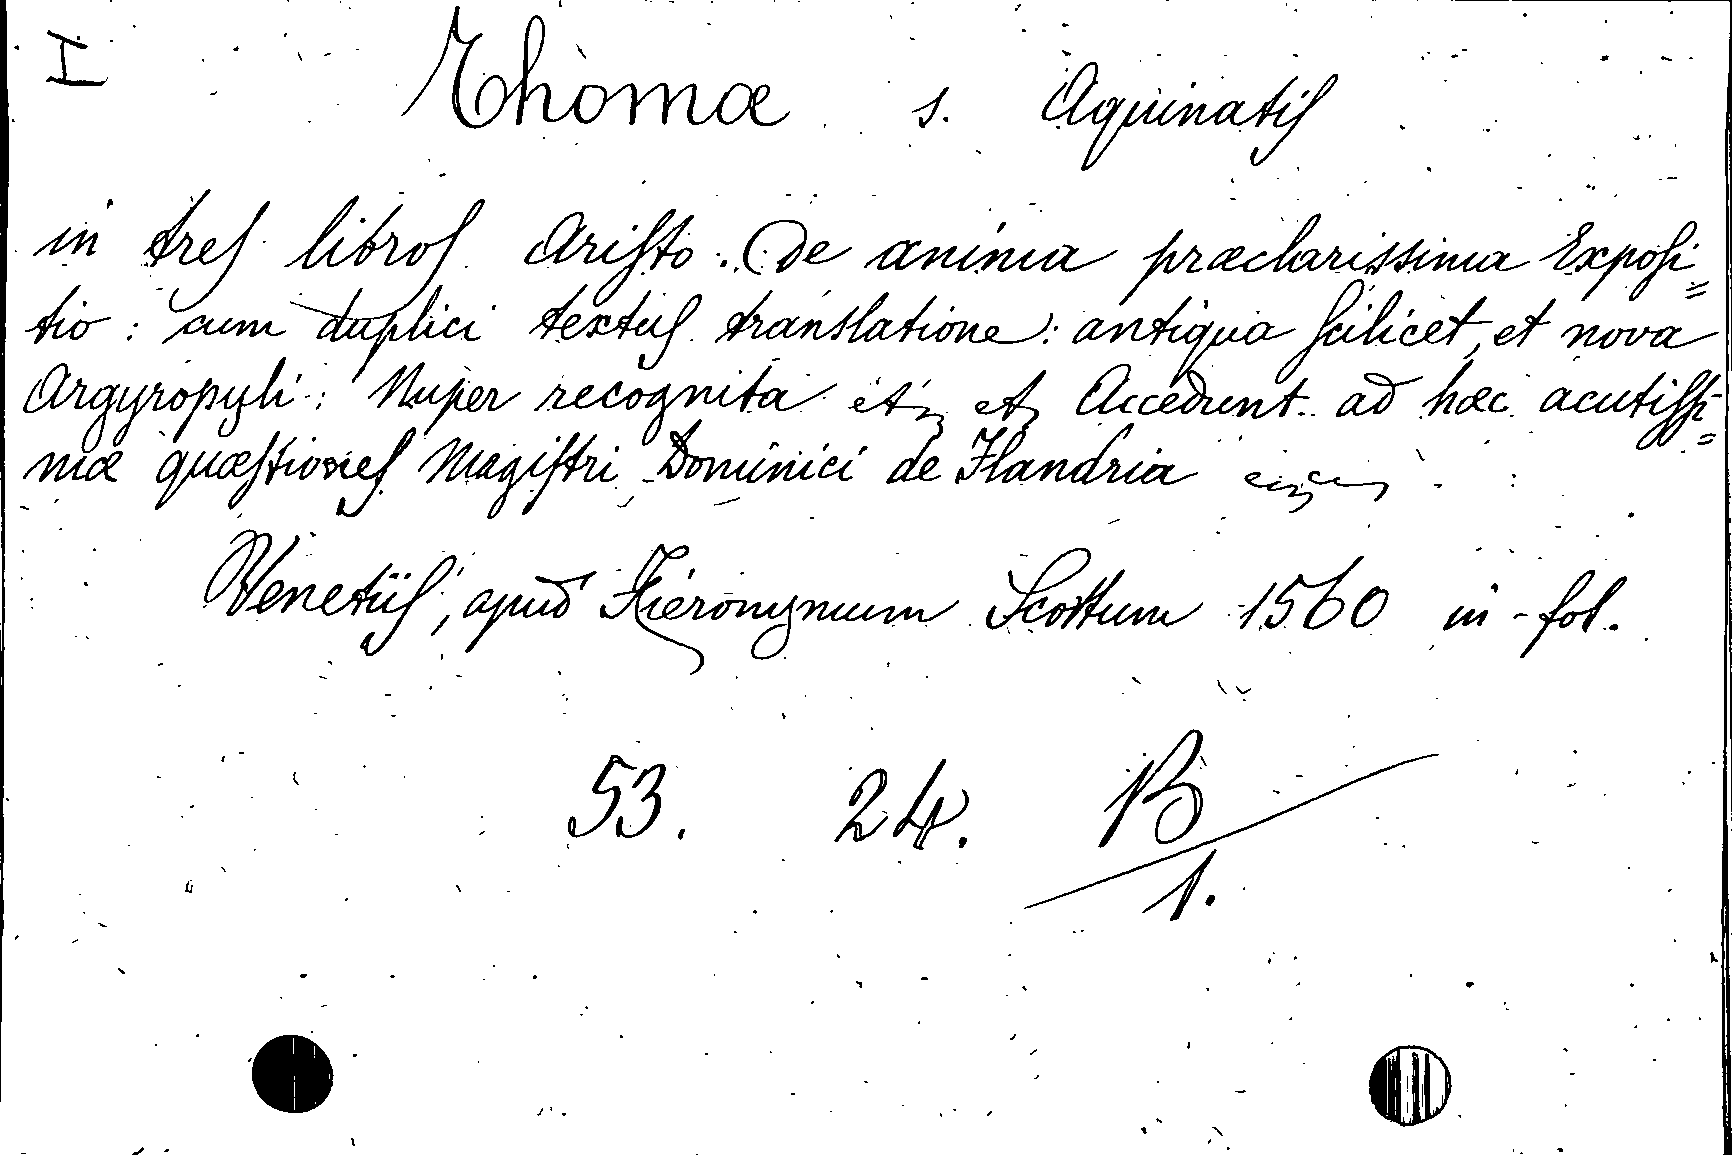 I
Thomæ s. Aquinatis
in tres libros Aristo. De anima præclarissima Exposi=
tio: cum duplici textus translatione: antiqua scilicet, et nova
Argyropyli: Nuper recognita etc etc Accedunt ad hæc acutissi=
mæ quæstiones Magistri Dominici de Flandria
Venetiis, apud Hieronymum Scottum 1560 in-fol.
53. 24. B
1.